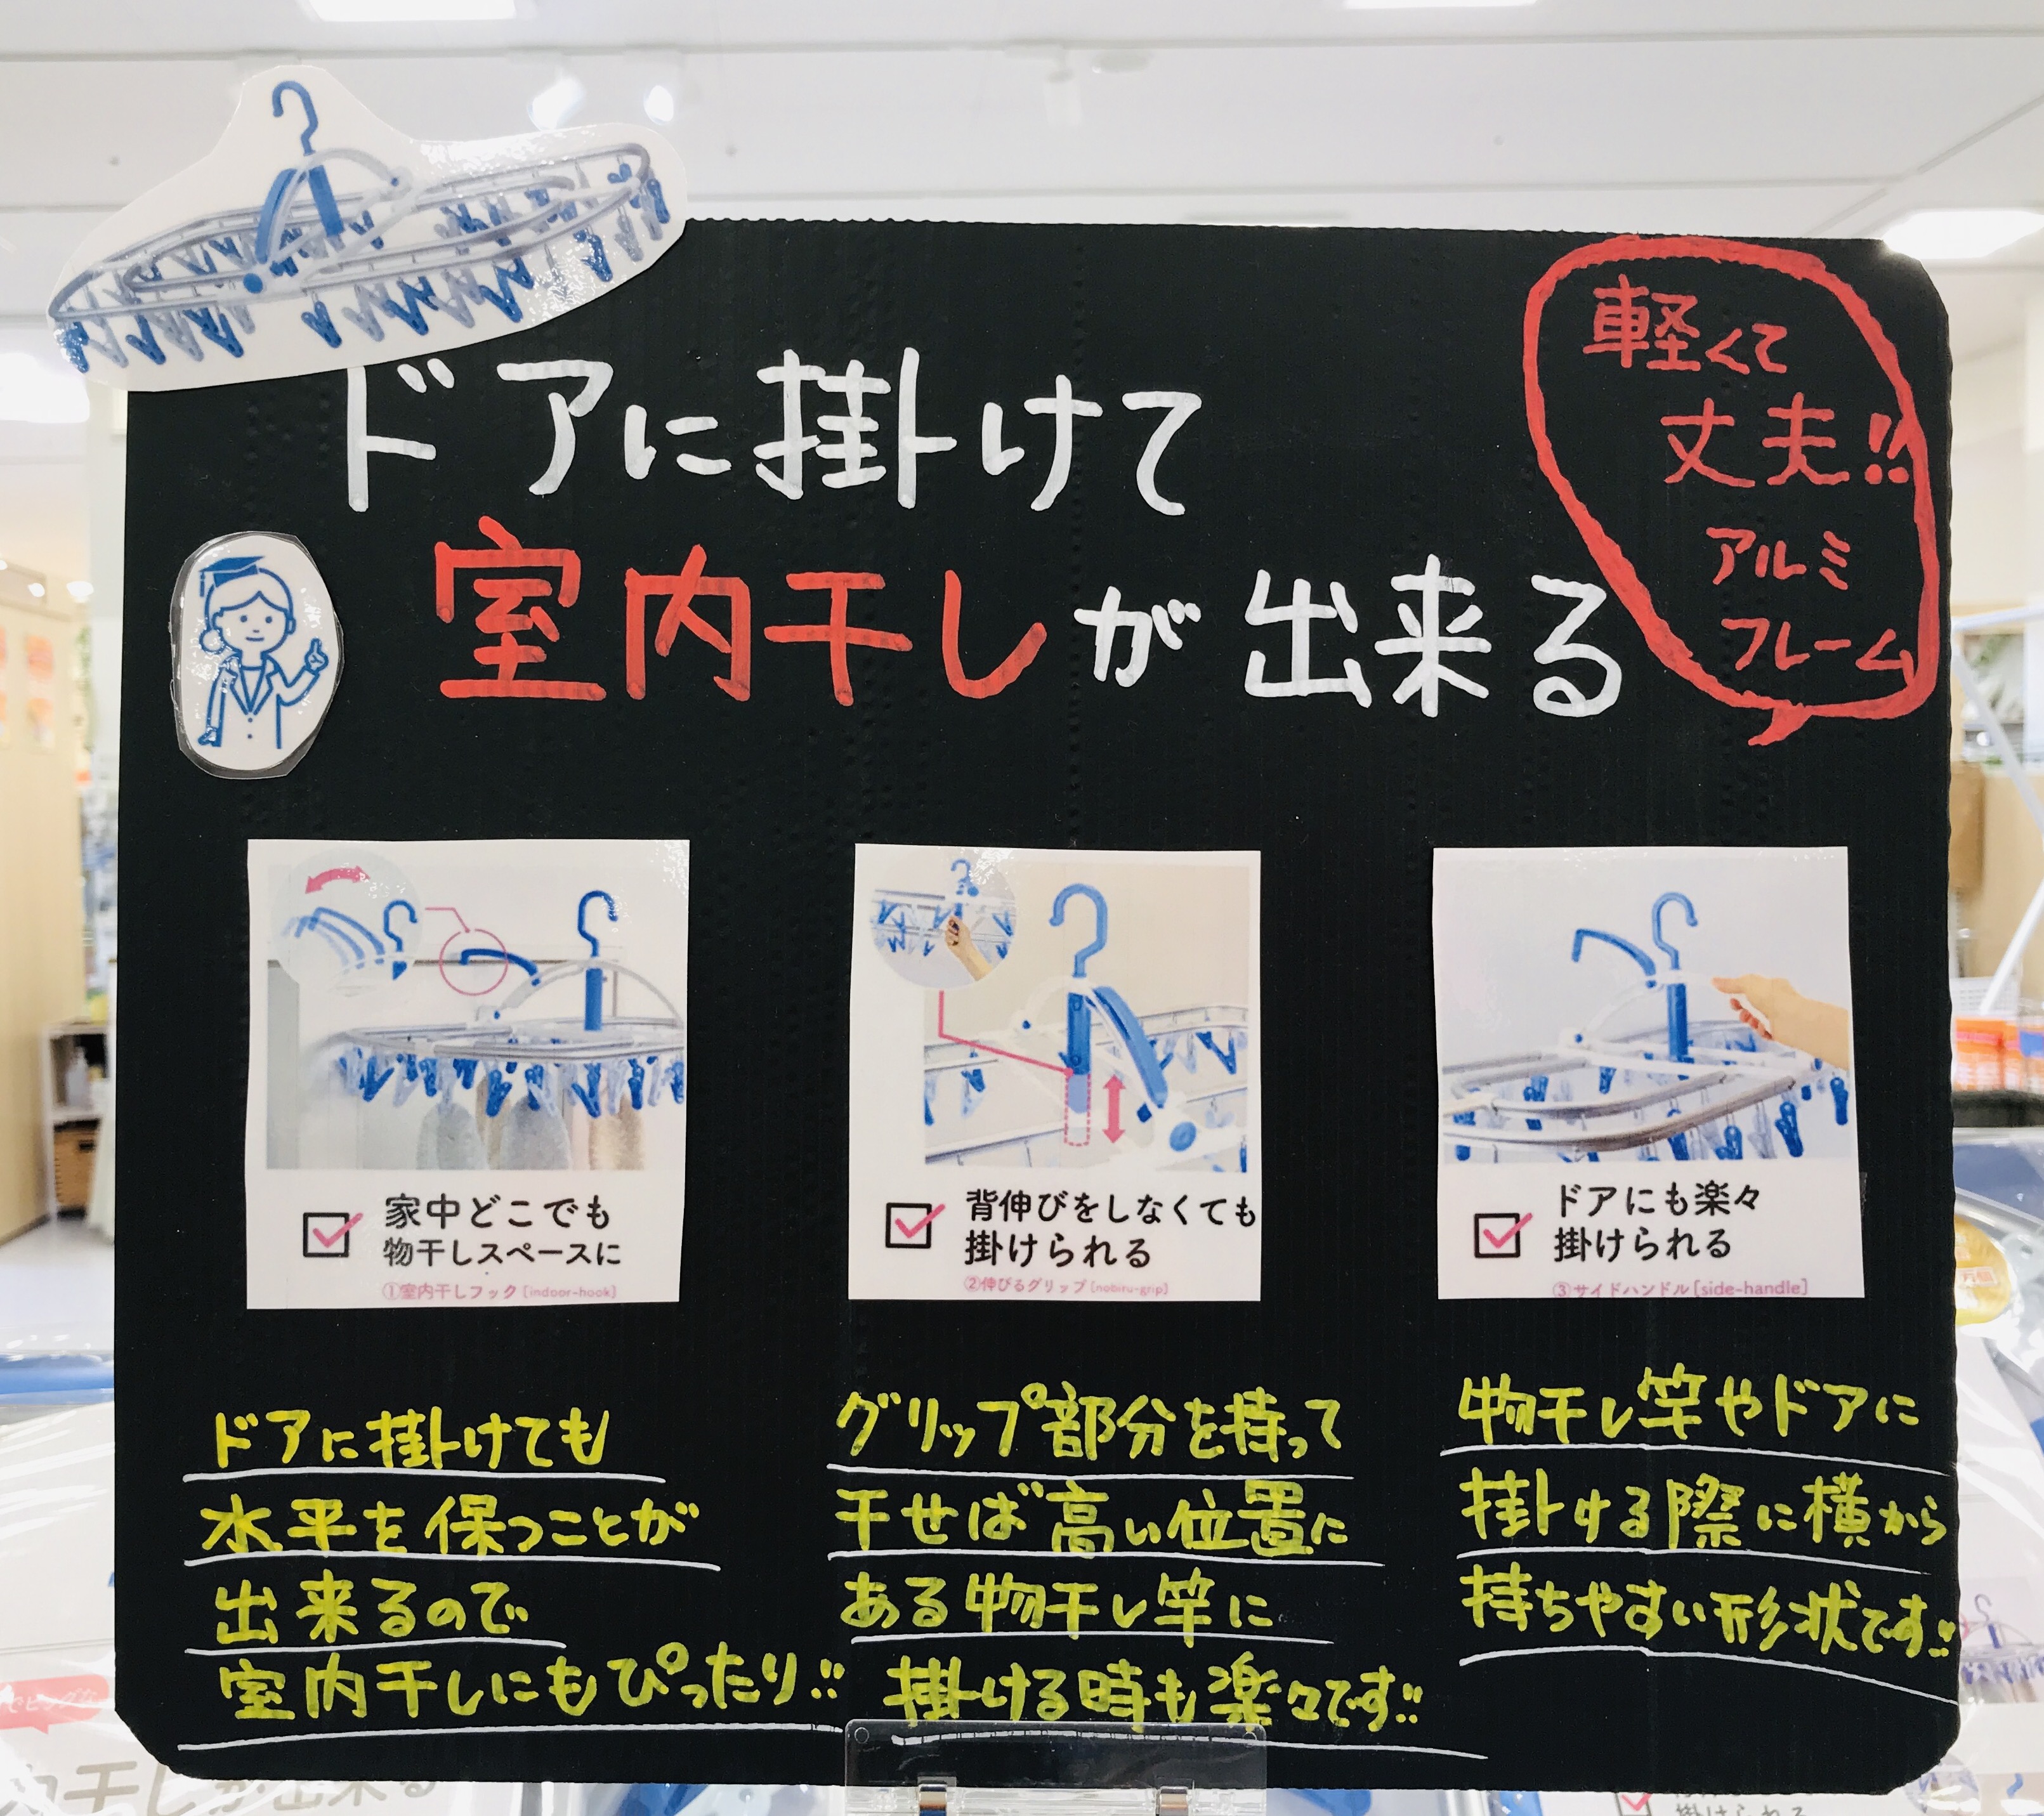 ドアに掛けて
室内干しが出来る
軽くて
丈夫!!
アルミ
フレーム
家中どこでも
物干しスペースに
①室内干しフック[indoor-hook]
背伸びをしなくても
掛けられる
②伸びるグリップ[nobiru-grip]
ドアにも楽々
掛けられる
③サイドハンドル[side-handle]
ドアに掛けても
水平を保つことが
出来るので
室内干しにもぴったり!!
グリップ部分を持って
干せば高い位置に
ある物干し竿に
掛ける時も楽々です!!
物干し竿やドアに
掛ける際に横から
持ちやすい形状です!!
干しが出来る
掛けられる